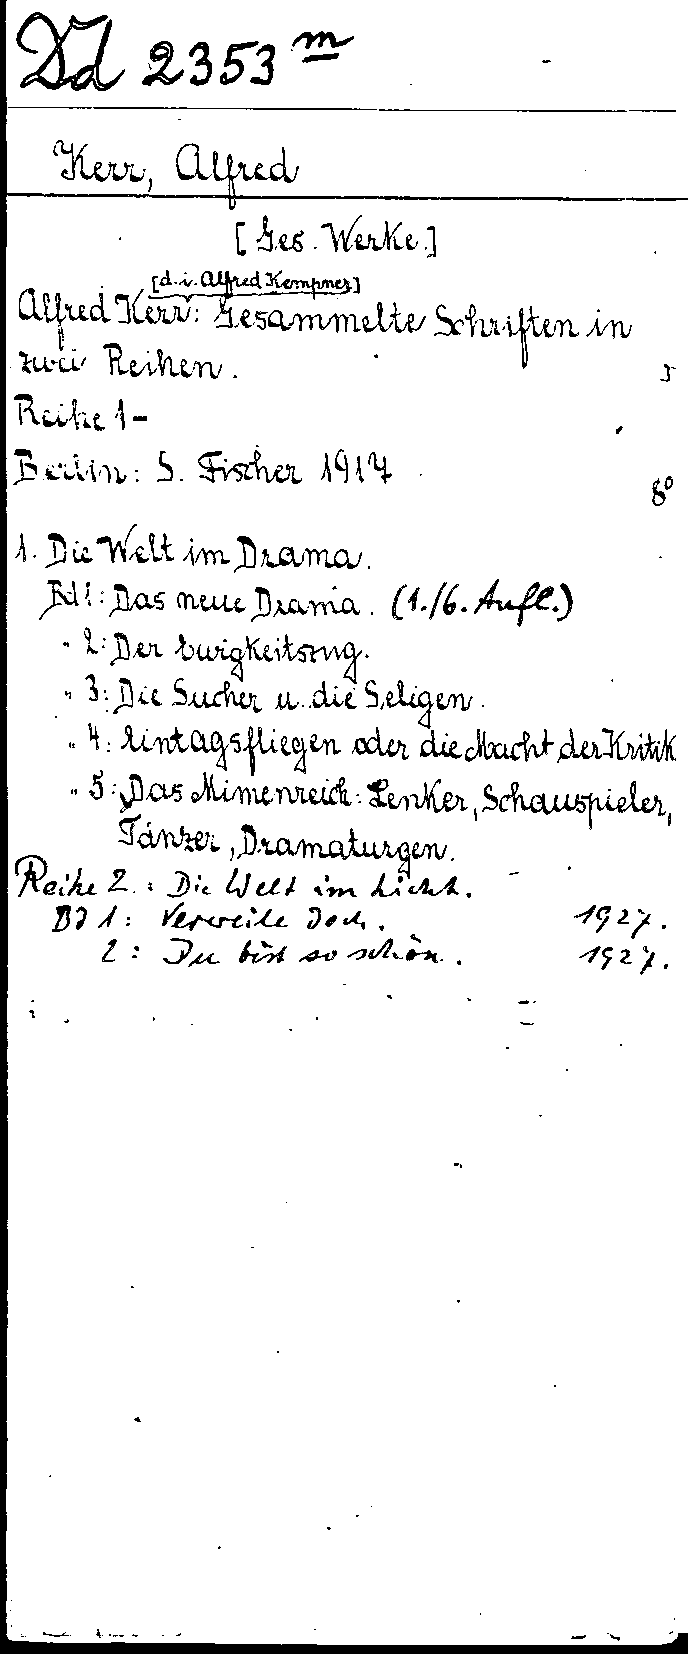 Dd 2353 m
Kerr, Alfred
[Ges. Werke.]
[d. i. Alfred Kempner]
Alfred Kerr: Gesammelte Schriften in
zwei Reihen.
Reihe 1-
Berlin: S. Fischer 1917
8°
1. Die Welt im Drama.
Bd 1: Das neue Drama. (1./6. Aufl.)
" 2: Der Ewigkeitszug.
" 3: Die Sucher u. die Seligen.
" 4: Eintagsfliegen oder die Macht der Kritik
" 5: Das Mimenreich: Lenker, Schauspieler,
Tänzer, Dramaturgen.
Reihe 2.: Die Welt im Licht.
Bd 1: Verweile doch. 1927.
2: Du bist so schön. 1927.